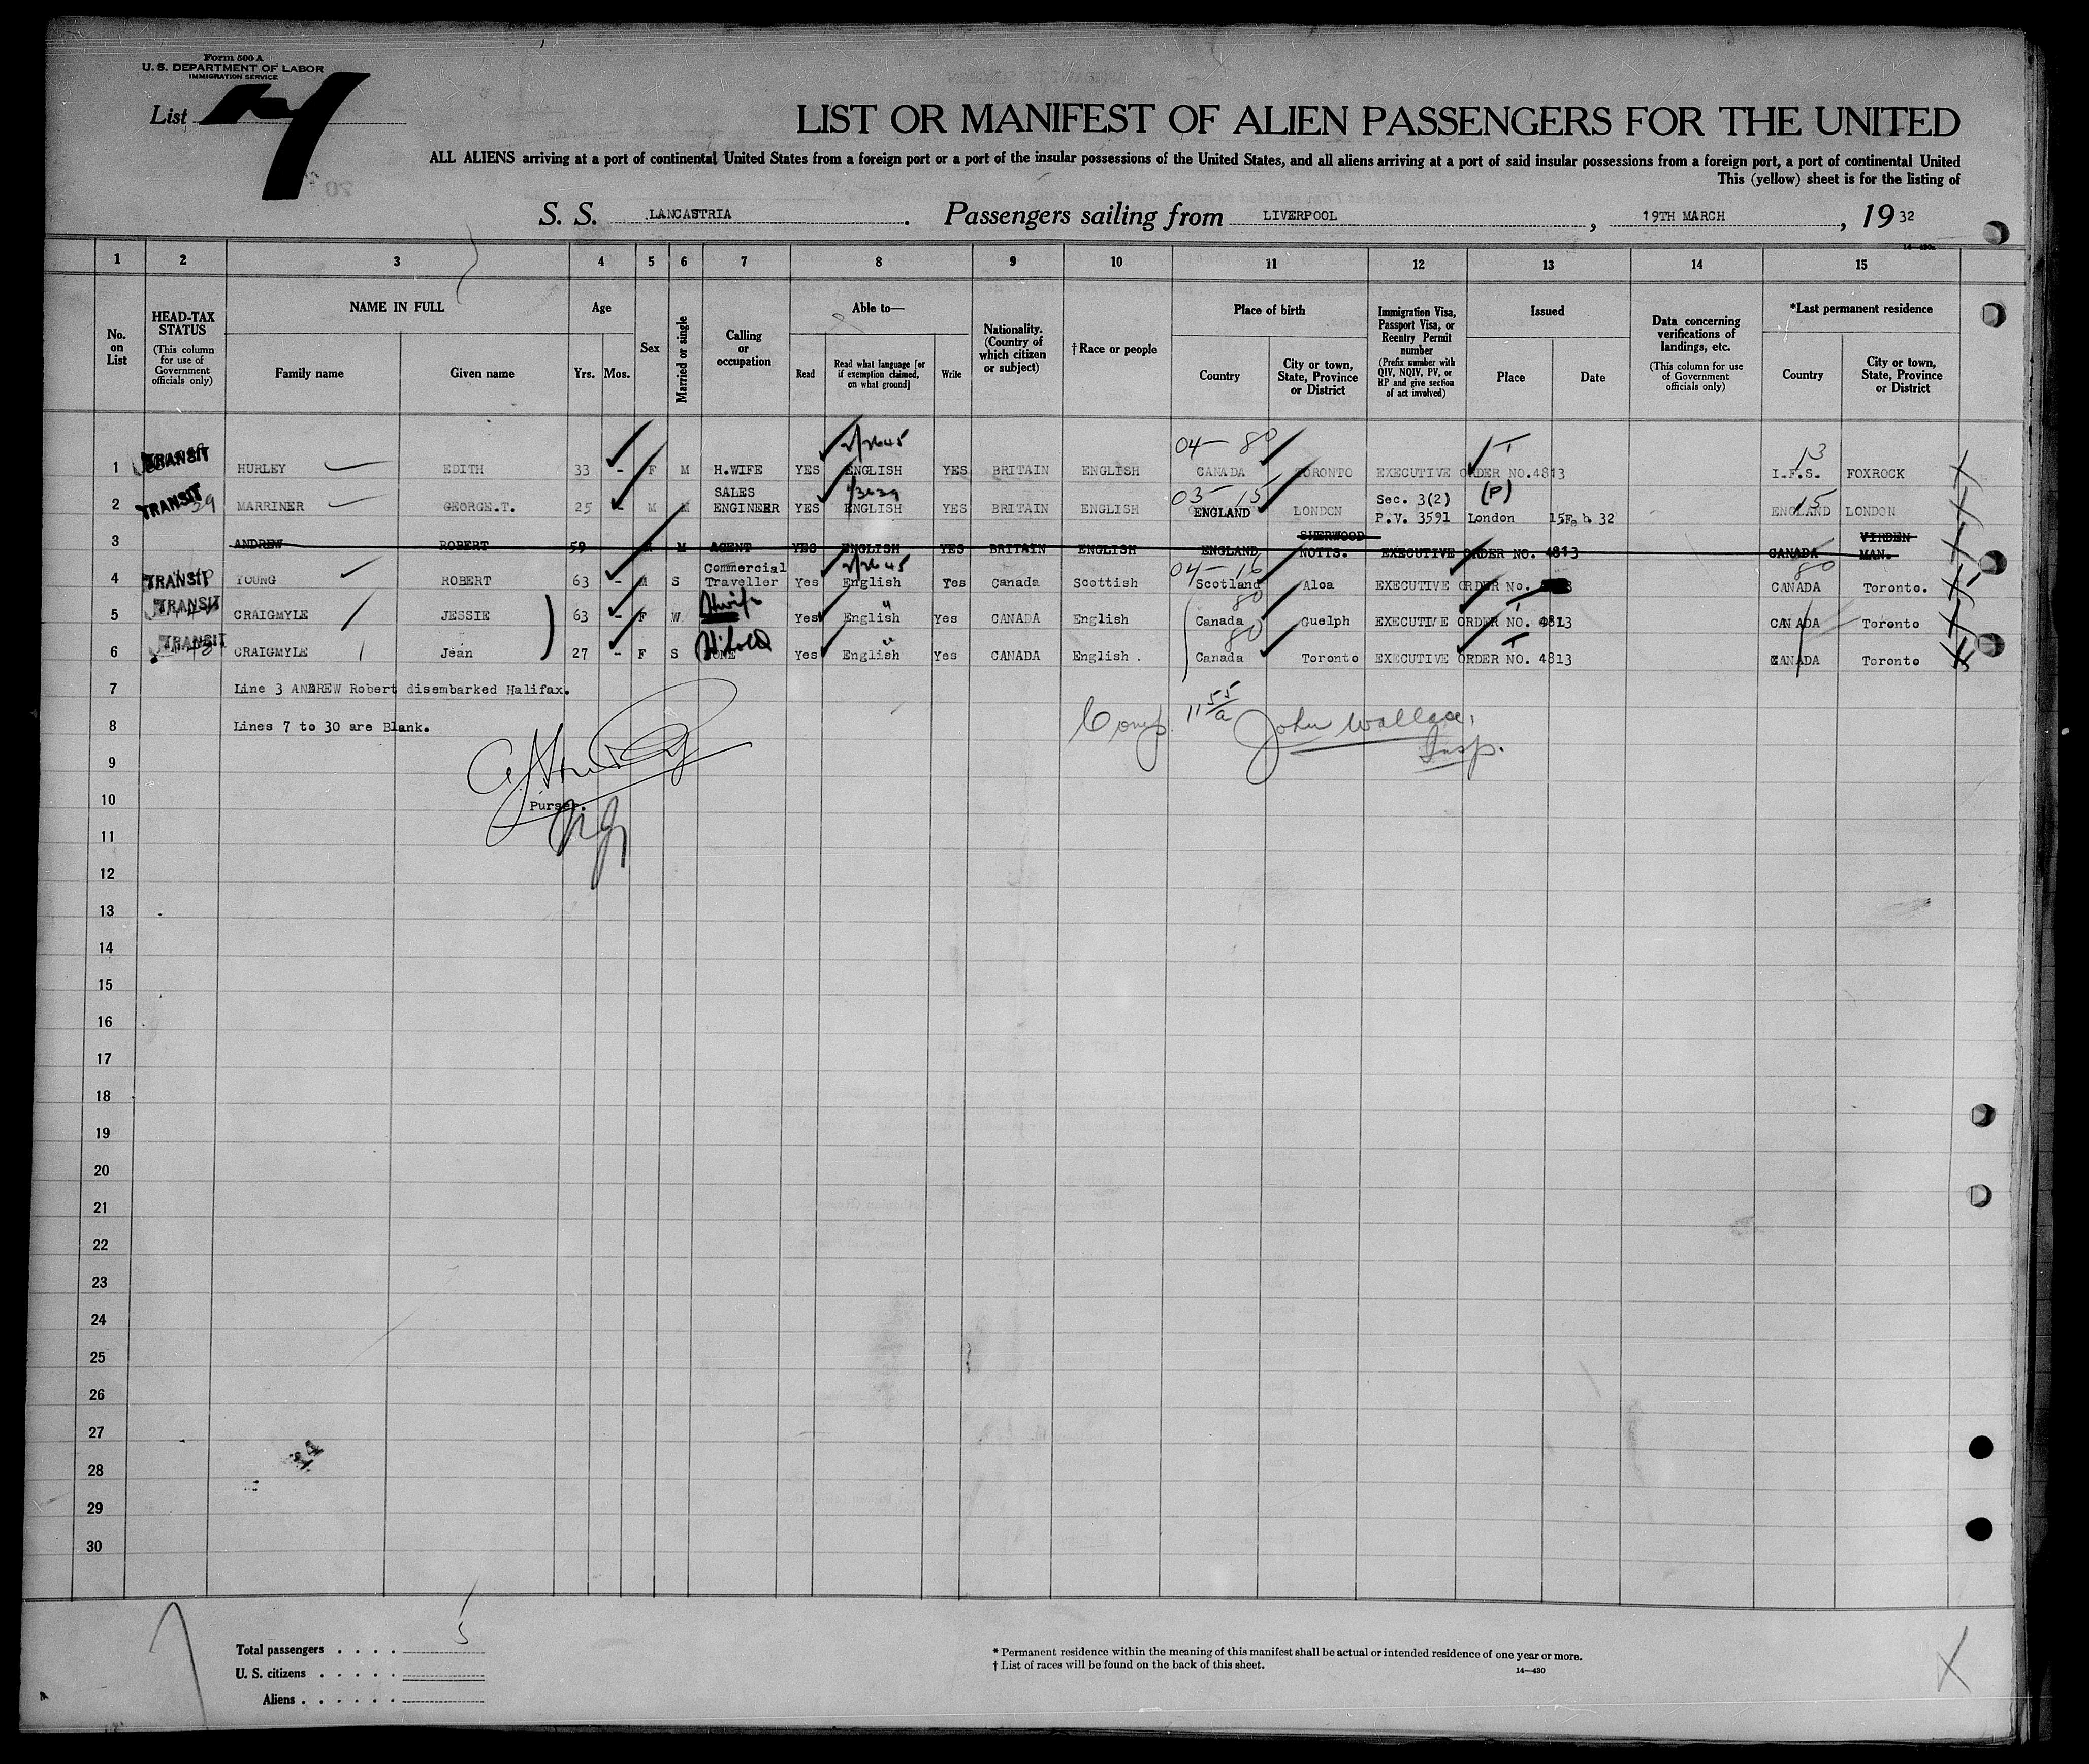 Form 500 A
U. S. DEPARTMENT OF LABOR
IMMIGRATION SERVICE
List 7
LIST OR MANIFEST OF ALIEN PASSENGERS FOR THE UNITED
ALL ALIENS arriving at a port of continental United States from a foreign port or a port of the insular possessions of the United States, and all aliens arriving at a port of said insular possessions from a foreign port, a port of continental United
This (yellow) sheet is for the listing of
S. S. LANCASTRIA. Passengers sailing from LIVERPOOL, 19TH MARCH, 19 32
1 2 3 4 5 6 7 8 9 10 11 12 13 14 15
No. on List
HEAD-TAX STATUS
(This column for use of Government officials only)
NAME IN FULL
Family name
Given name
Age
Yrs. Mos.
Sex
Married or single
Calling or occupation
Able to—
Read
Read what language [or if exemption claimed, on what ground]
Write
Nationality. (Country of which citizen or subject)
†Race or people
Place of birth
Country
City or town, State, Province or District
Immigration Visa, Passport Visa, or Reentry Permit number
(Prefix number with QIV, NQIV, PV, or RP and give section of act involved)
Issued
Place
Date
Data concerning verifications of landings, etc.
(This column for use of Government officials only)
*Last permanent residence
Country
City or town, State, Province or District
04— 80 T 13
1 TRANSIT HURLEY EDITH 33 - F M H.WIFE YES ENGLISH YES BRITAIN ENGLISH CANADA TORONTO EXECUTIVE ORDER NO.4813 I.F.S. FOXROCK
03— 15 Sec. 3(2) (P) 15
2 TRANSIT MARRINER GEORGE.T. 25 - M M SALES ENGINEER YES ENGLISH YES BRITAIN ENGLISH ENGLAND LONDON P.V. 3591 London 15Feb. 32 ENGLAND LONDON
3 ANDREW ROBERT 59 M M AGENT YES ENGLISH YES BRITAIN ENGLISH ENGLAND SHERWOOD NOTTS. EXECUTIVE ORDER NO. 4813 CANADA VIRDEN MAN.
04— 16 80
4 TRANSIT YOUNG ROBERT 63 - M S Commercial Traveller Yes English Yes Canada Scottish Scotland Aloa EXECUTIVE ORDER No. CANADA Toronto.
80
5 TRANSIT CRAIGMYLE JESSIE 63 - F W Hwife Yes English " Yes CANADA English Canada Guelph EXECUTIVE ORDER NO. 4813 CANADA Toronto
80
6 TRANSIT CRAIGMYLE Jean 27 - F S NONE Yes English " Yes CANADA English. Canada Toronto EXECUTIVE ORDER NO. 4813 CANADA Toronto
7 Line 3 ANDREW Robert disembarked Halifax.
8 Lines 7 to 30 are Blank.
Comp. 11 55/a John Wallace, Insp.
9
10 Purser.
11
12
13
14
15
16
17
18
19
20
21
22
23
24
25
26
27
28
29
30
Total passengers . . . . 5
U. S. citizens . . . . .
Aliens . . . . . .
* Permanent residence within the meaning of this manifest shall be actual or intended residence of one year or more.
† List of races will be found on the back of this sheet.
14—430